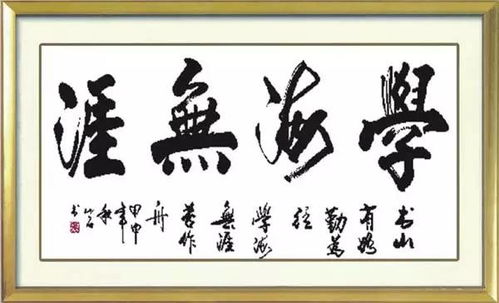 學海無涯
書山
有路
勤為
徑
學海
無涯
苦作
舟
甲申
年
秋
書